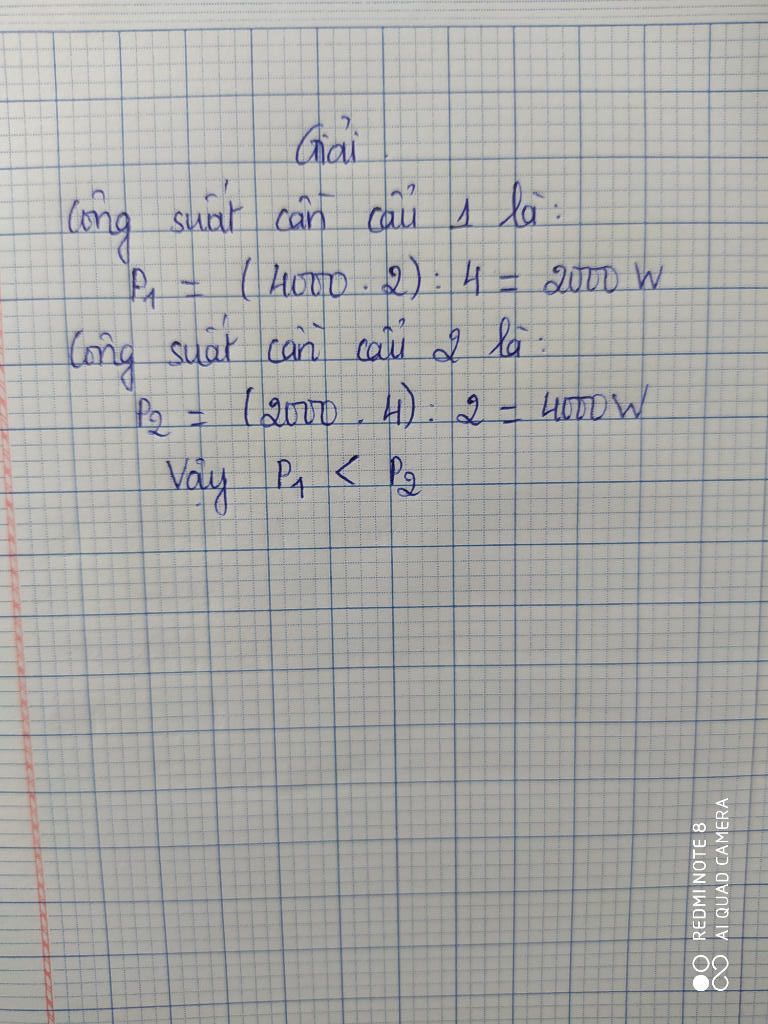 Giải
Công suất cần cẩu 1 là:
P1 = (4000 . 2) : 4 = 2000 W
Công suất cần cẩu 2 là:
P2 = (2000 . 4) : 2 = 4000 W
Vậy P1 < P2
REDMI NOTE 8
AI QUAD CAMERA